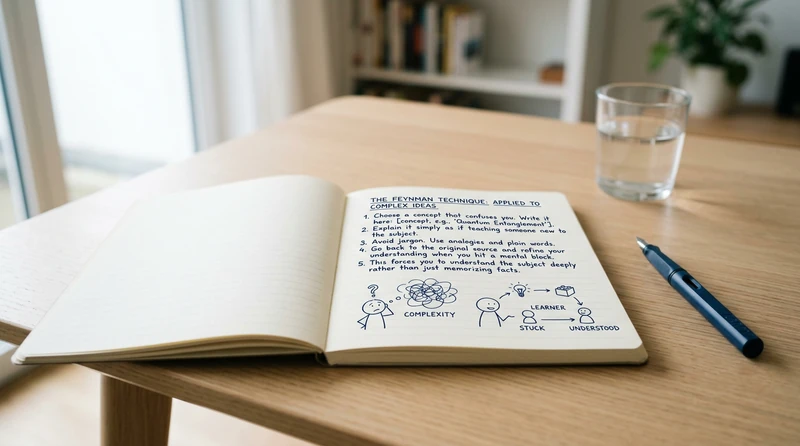 THE FEYNMAN TECHNIQUE: APPLIED TO
COMPLEX IDEAS
1. Choose a concept that confuses you. Write it
here: [concept, e.g., 'Quantum Entanglement'].
2. Explain it simply as if teaching someone new to
the subject.
3. Avoid jargon. Use analogies and plain words.
4. Go back to the original source and refine your
understanding when you hit a mental block.
5. This forces you to understand the subject deeply
rather than just memorizing facts.
?
COMPLEXITY
LEARNER
STUCK
UNDERSTOOD